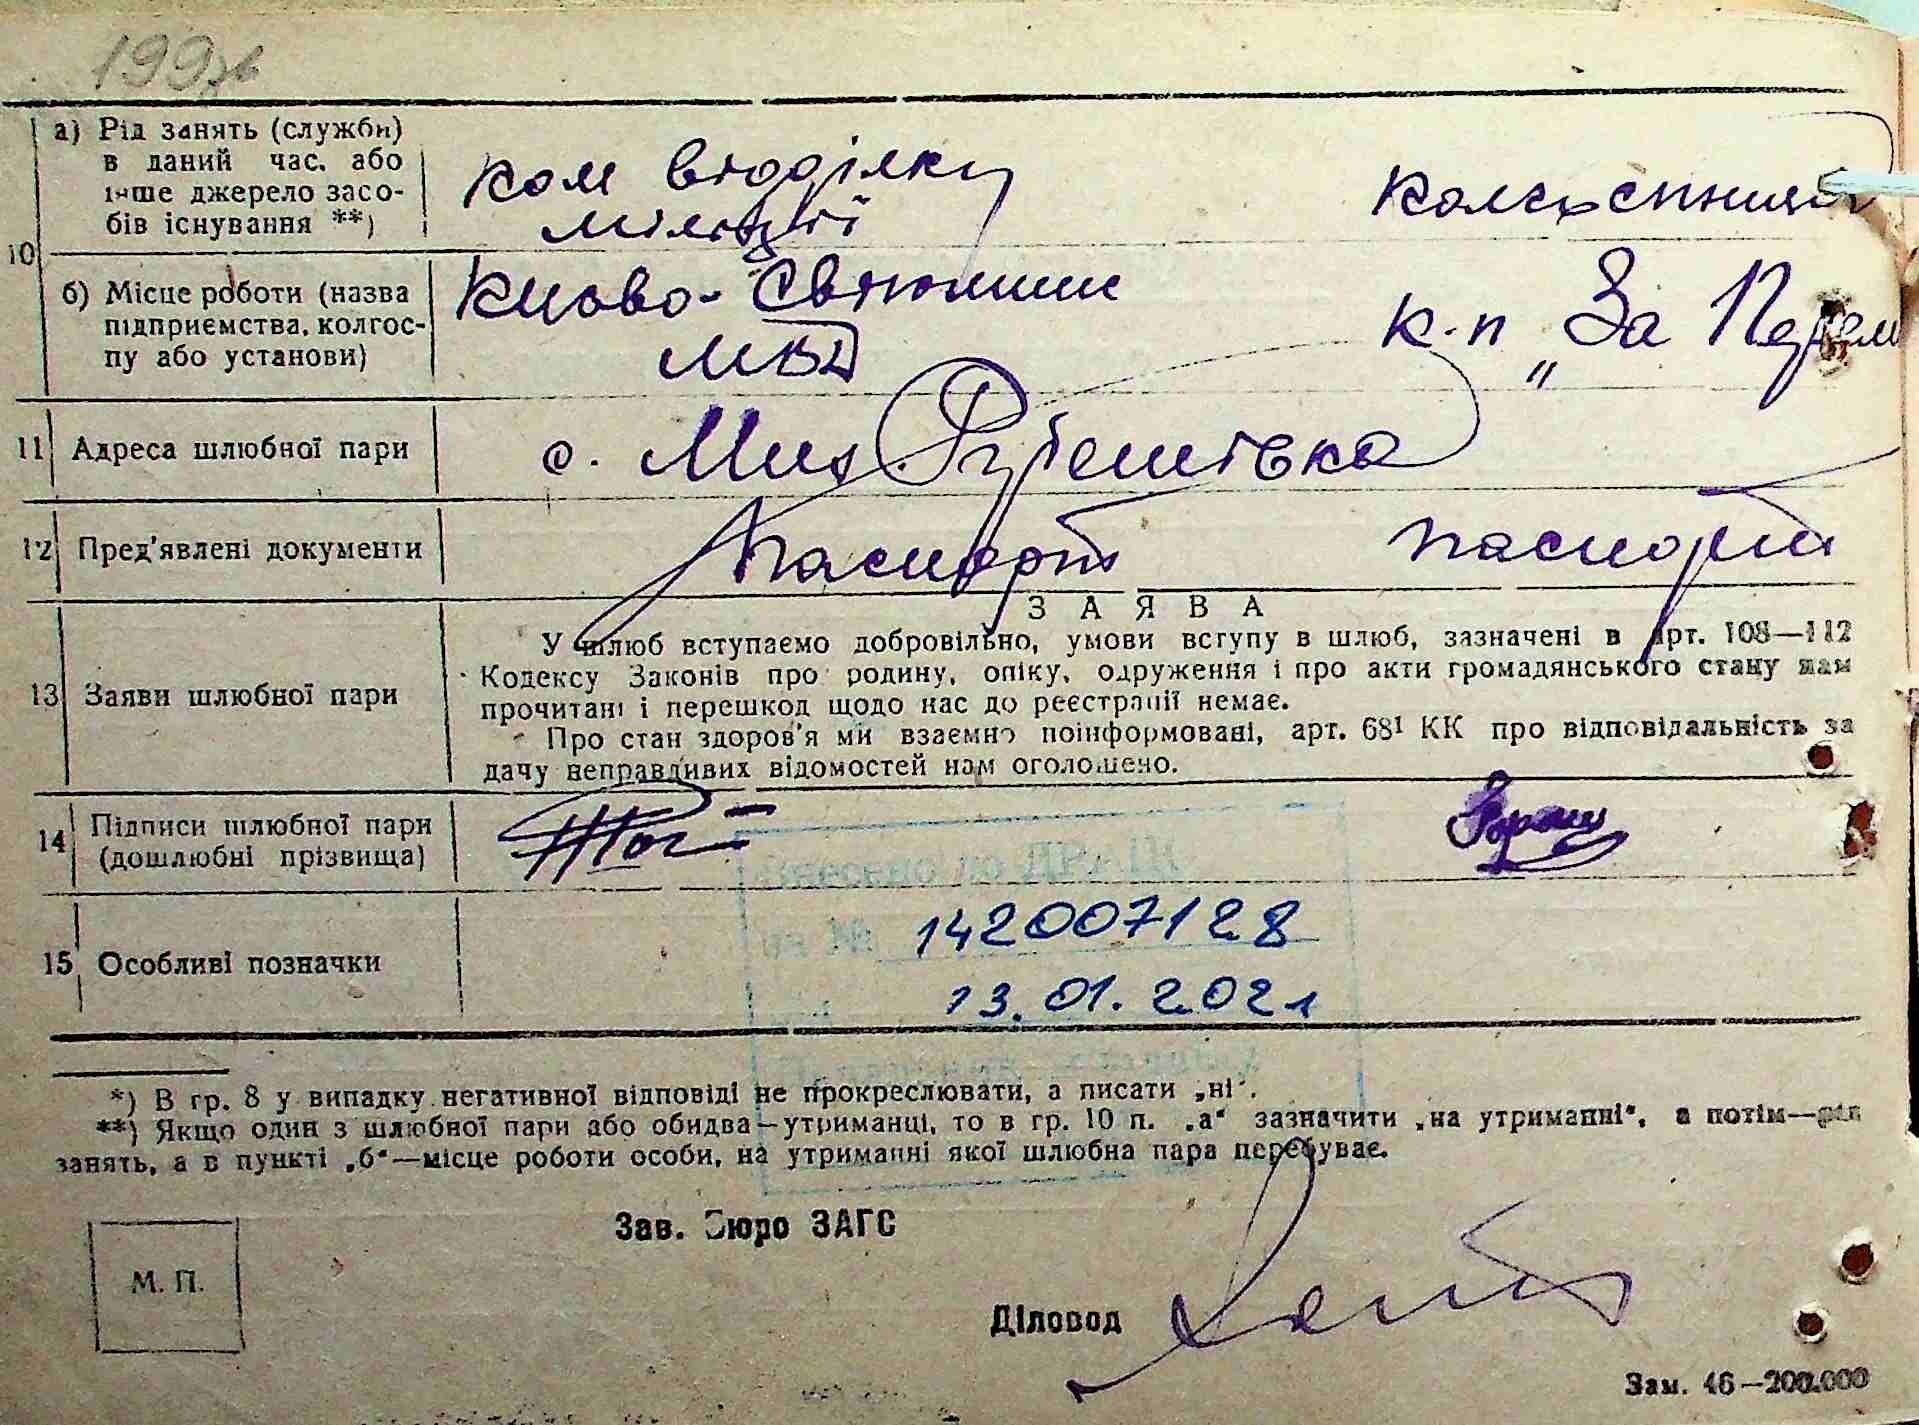 199зв
10 а) Рід занять (служби) в даний час, або інше джерело засобів існування **)
ком відділку міліції
колгоспниця
б) Місце роботи (назва підприємства, колгоспу або установи)
Києво-Святошин МВД
к-п „За Перем
11 Адреса шлюбної пари
с. Мих Рубешівка
12 Пред'явлені документи
паспорт
паспорт
13 Заяви шлюбної пари
ЗАЯВА
У шлюб вступаємо добровільно, умови вступу в шлюб, зазначені в арт. 108—112
Кодексу Законів про родину, опіку, одруження і про акти громадянського стану нам
прочитані і перешкод щодо нас до реєстрації немає.
Про стан здоров'я ми взаємно поінформовані, арт. 68¹ КК про відповідальність за
дачу неправдивих відомостей нам оголошено.
14 Підписи шлюбної пари (дошлюбні прізвища)
15 Особливі позначки
142007128
13.01.2021
*) В гр. 8 у випадку негативної відповіді не прокреслювати, а писати „ні".
**) Якщо один з шлюбної пари або обидва—утриманці, то в гр. 10 п. „а" зазначити „на утриманні", а потім—рід
занять, а в пункті „б"—місце роботи особи, на утриманні якої шлюбна пара перебуває.
Зав. Бюро ЗАГС
М. П.
Діловод
Зам. 46—200.000